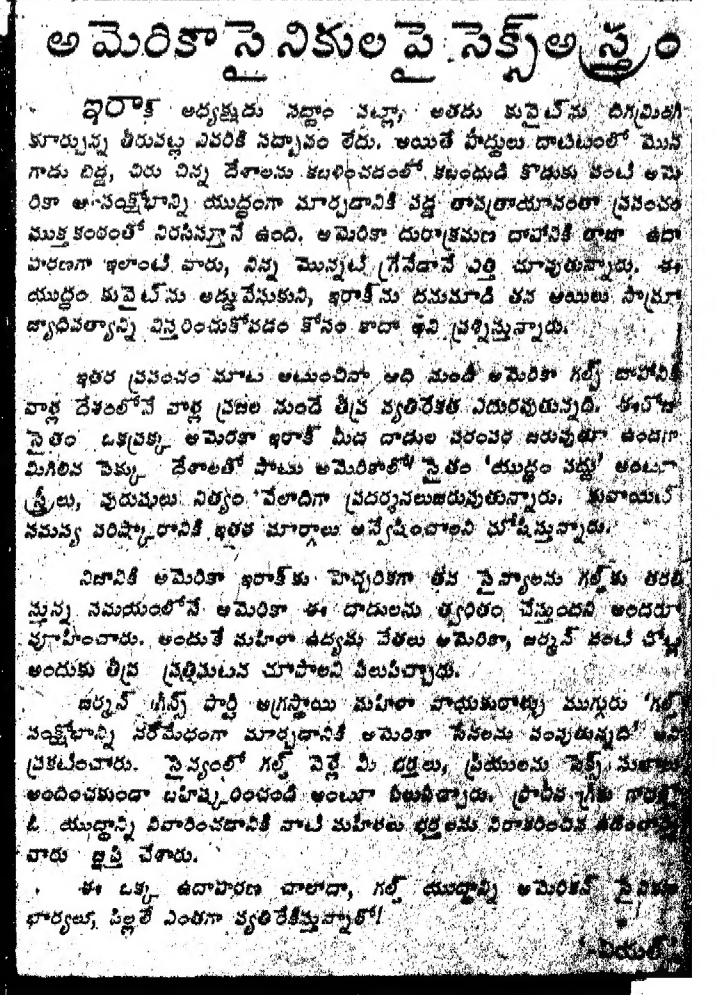 అమెరికా సైనికులపై సెక్స్ అస్త్రం
ఇరాక్ అధ్యక్షుడు సద్దాం పట్లా, అతడు కువైట్‌ను దిగ్రమించి
కూర్చున్న తీరుపట్ల ఎవరికీ సద్భావం లేదు. అయితే హద్దులు దాటటంలో మొన
గాడు బిడ్డ, చిరు చిన్న దేశాలను కబళించడంలో కబంధుడి కొడుకు వంటి అమె
రికా ఆ సంక్షోభాన్ని యుద్ధంగా మార్చడానికి పడ్డ తాపత్రాయానంతా ప్రపంచం
ముక్తకంఠంతో నిరసిస్తూనే ఉంది. అమెరికా దురాక్రమణ దాహానికి తాజా ఉదా
హరణగా ఇలాంటి వారు, నిన్న మొన్నటి గ్రేనేడానే ఎత్తి చూపుతున్నారు. ఈ
యుద్ధం కువైట్‌ను అడ్డువేసుకుని, ఇరాక్‌ను దునుమాడి తన ఆయిలు సామ్రా
జ్యాధిపత్యాన్ని విస్తరించుకోవడం కోసం కాదా అని ప్రశ్నిస్తున్నారు.
ఇతర ప్రపంచం మాట అటుంచినా ఆది నుండీ అమెరికా గల్ఫ్ దాహానికి
వాళ్ల దేశంలోనే వాళ్ల ప్రజల నుండే తీవ్ర వ్యతిరేకత ఎదురవుతున్నది. ఈరోజు
సైతం ఒకప్రక్క అమెరికా ఇరాక్ మీద దాడుల పరంపర జరుపుతూ ఉండగా
మిగిలిన పెక్కు దేశాలతో పాటు అమెరికాలో సైతం 'యుద్ధం వద్దు' అంటూ
స్త్రీలు, పురుషులు నిత్యం వేలాదిగా ప్రదర్శనలుజరుపుతున్నారు. కువాయట్
సమస్య పరిష్కారానికి ఇతర మార్గాలు అన్వేషించాలని ఘోషిస్తున్నారు.
నిజానికి అమెరికా ఇరాక్‌కు హెచ్చరికగా తన సైన్యాలను గల్ఫ్‌కు తరలి
స్తున్న సమయంలోనే అమెరికా ఈ దాడులను త్వరితం చేస్తుందని అందరూ
వూహించారు. అందుకే మహిళా ఉద్యమ నేతలు అమెరికా, జర్మన్ వంటి చోట్ల
అందుకు తీవ్ర ప్రతిఘటన చూపాలని పిలుపిచ్చారు.
జర్మన్ గ్రీన్స్ పార్టీ అగ్రస్థాయి మహిళా నాయకురాళ్ళు ముగ్గురు 'గల్ఫ్
సంక్షోభాన్ని నరమేధంగా మార్చడానికే అమెరికా సేనలను పంపుతున్నది' అని
ప్రకటించారు. సైన్యంలో గల్ఫ్ వెళ్లే మీ భర్తలు, ప్రియులను సెక్స్ సుఖాలు
అందించకుండా బహిష్కరించండి అంటూ పిలుపిచ్చారు. ప్రాచీన గ్రీకు గాథలో
ఓ యుద్ధాన్ని నివారించడానికి నాటి మహిళలు భర్తలను నిరాకరించిన ఉదంతాన్ని
వారు జ్ఞప్తి చేశారు.
ఈ ఒక్క ఉదాహరణ చాలాదా, గల్ఫ్ యుద్ధాన్ని అమెరికన్ సైనికుల
భార్యలూ, పిల్లలే ఎంతగా వ్యతిరేకిస్తున్నారో!